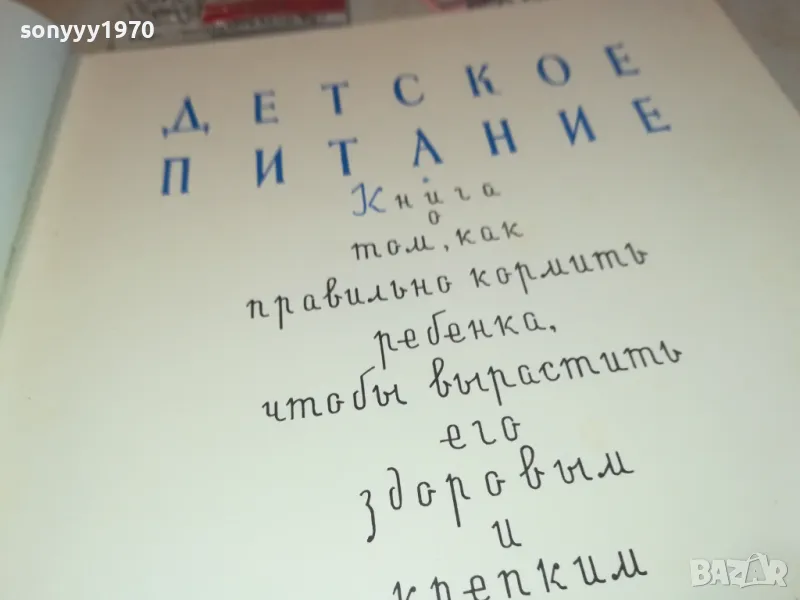 sonyyy1970
ДЕТСКОЕ
ПИТАНИЕ
Книга
о
том, как
правильно кормить
ребенка,
чтобы вырастить
его
здоровым
и
крепким
BAZAR